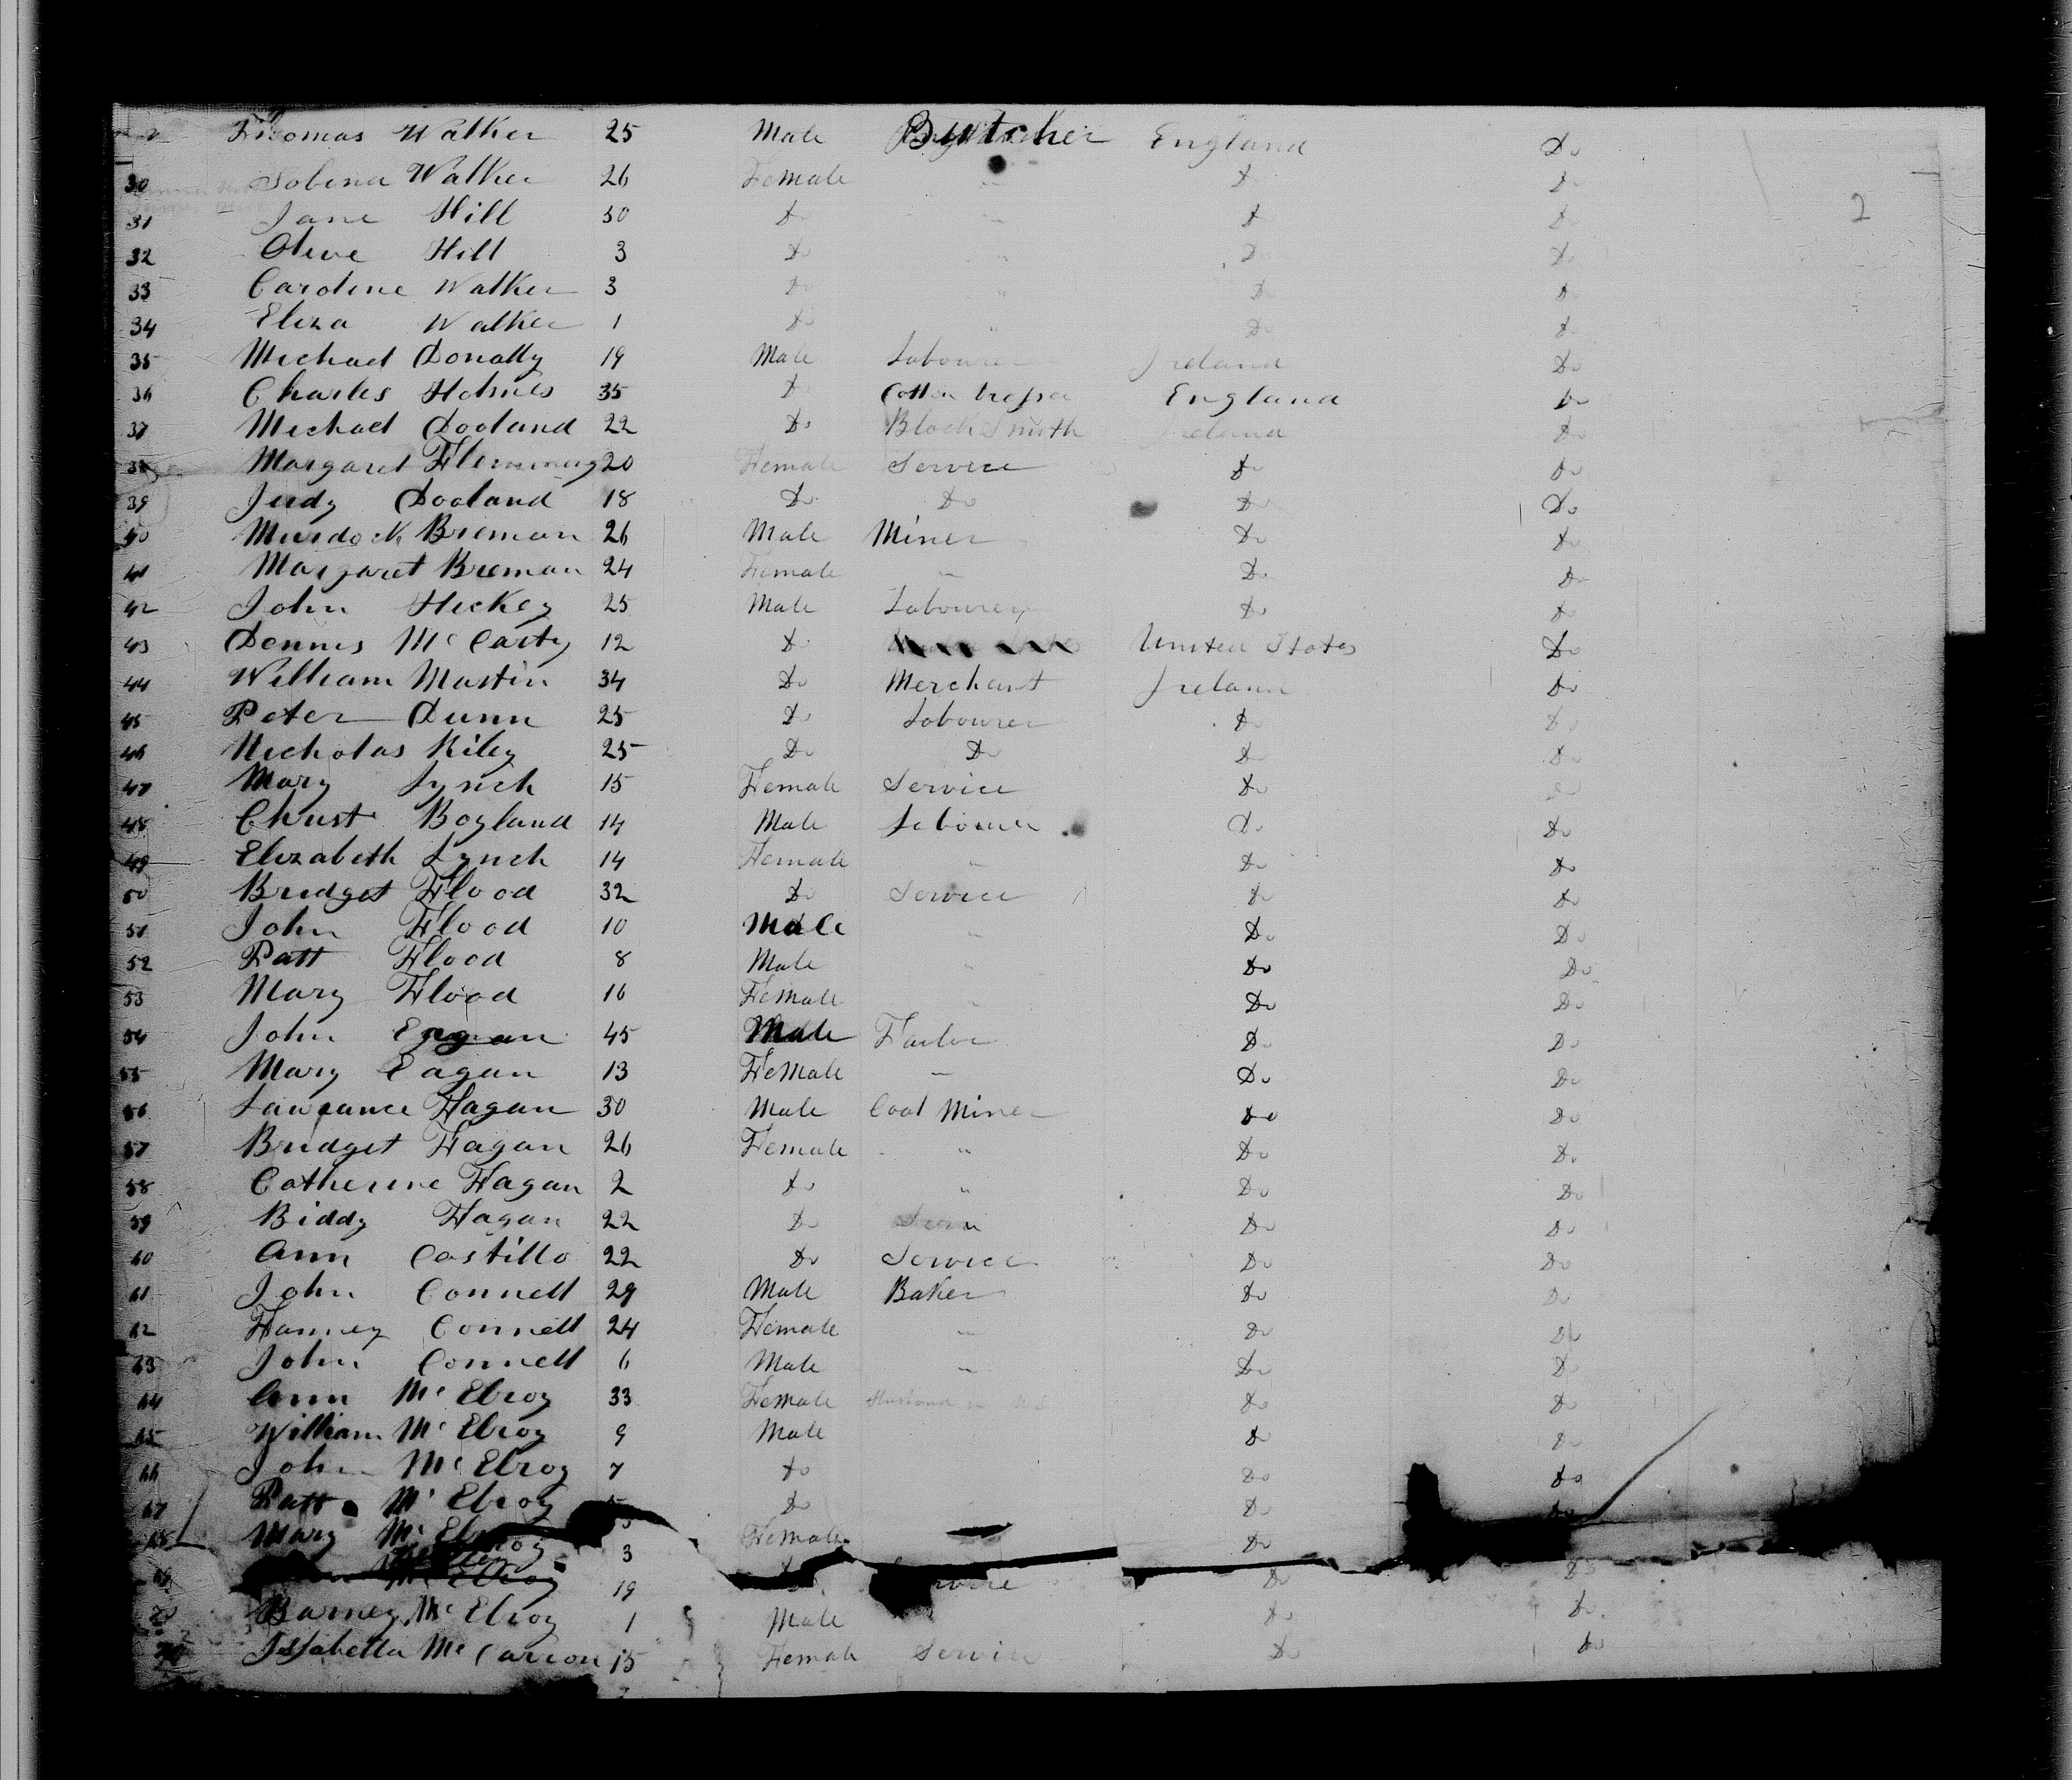 Thomas Walker 25 Male Butcher England Do
30 Sobina Walker 26 Female " Do Do
2
31 Jane Hill 30 Do " Do Do
32 Olive Hill 3 Do " Do Do
33 Caroline Walker 3 Do " Do Do
34 Eliza Walker 1 Do " Do Do
35 Michael Donally 19 Male Labourer Ireland Do
36 Charles Holmes 35 Do Cotton England Do
37 Michael Dooland 22 Do Black Smith Ireland Do
38 Margaret Flemming 20 Female Service Do Do
39 Judy Dooland 18 Do Do Do Do
40 Murdock Breman 26 Male Miner Do Do
41 Margaret Breman 24 Female " Do Do
42 John Hickey 25 Male Labourer Do Do
43 Dennis Mc Carty 12 Do United States Do
44 William Martin 34 Do Merchant Ireland Do
45 Peter Dunn 25 Do Labourer Do Do
46 Nicholas Riley 25 Do Do Do Do
47 Mary Lynch 15 Female Service Do Do
48 Christ Boyland 14 Male Labourer Do Do
49 Elizabeth Lynch 14 Female " Do Do
50 Bridget Flood 32 Do Service Do Do
51 John Flood 10 Male " Do Do
52 Patt Flood 8 Male " Do Do
53 Mary Flood 16 Female " Do Do
54 John Eagan 45 Male Do Do
55 Mary Eagan 13 Female " Do Do
56 Lawrance Hagan 30 Male Coal Miner Do Do
57 Bridget Hagan 26 Female " Do Do
58 Catherine Hagan 2 Do " Do Do
59 Biddy Hagan 22 Do Do Do
60 Ann Costillo 22 Do Service Do Do
61 John Connell 29 Male Baker Do Do
62 Hanney Connell 24 Female " Do Do
63 John Connell 6 Male " Do Do
64 Ann Mc Elroy 33 Female Husband in US Do Do
65 William Mc Elroy 9 Male Do Do
66 John Mc Elroy 7 Do Do Do
67 Patt Mc Elroy Do Do Do
68 Mary Mc Elroy 3 Female Do
69 Mc Elroy 19 Do Do Do
70 Barney Mc Elroy 1 Male Do Do
Issabella Mc Carron 15 Female Service Do Do